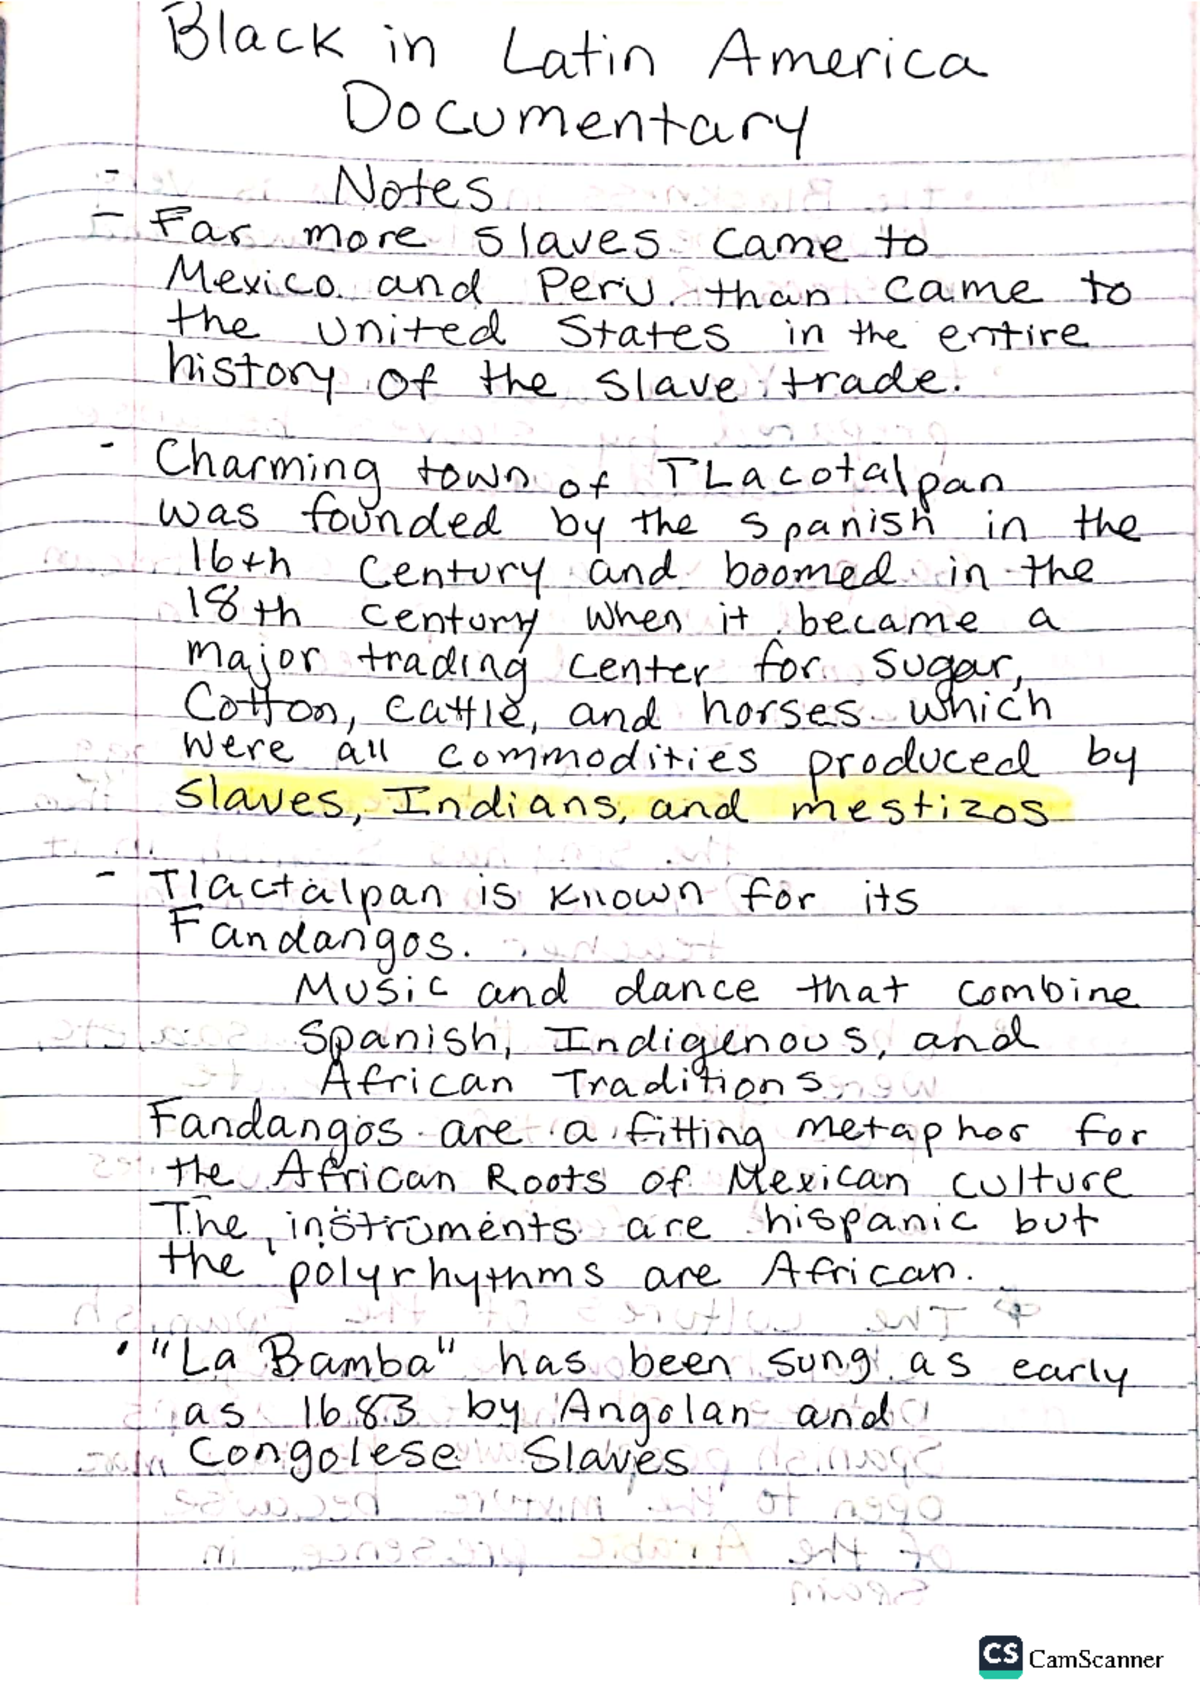 Black in Latin America
Documentary
- Notes
- Far more slaves came to
Mexico and Peru than came to
the United States in the entire
history of the slave trade.
- Charming town of TLacotalpan
was founded by the spanish in the
16th Century and boomed in the
18th Century when it became a
major trading center for sugar,
Cotton, cattle, and horses which
were all commodities produced by
slaves, Indians, and mestizos
- Tlactalpan is known for its
Fandangos.
Music and dance that combine
Spanish, Indigenous, and
African Traditions
Fandangos are a fitting metaphor for
the African Roots of Mexican culture
The instruments are hispanic but
the polyrhythms are African.
• "La Bamba" has been sung as early
as 1683 by Angolan and
Congolese Slaves
CS CamScanner